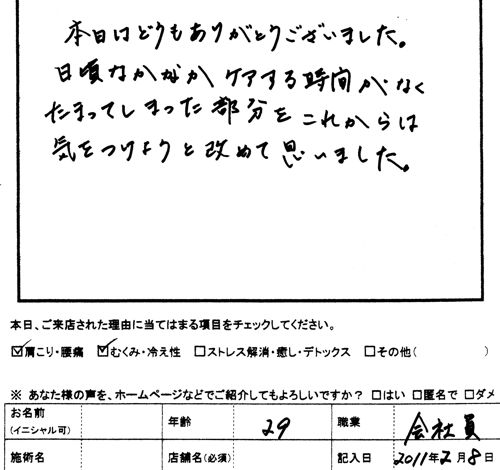 本日はどうもありがとうございました。
日頃なかなかケアする時間がなく
たまってしまった部分をこれからは
気をつけようと改めて思いました。
本日、ご来店された理由に当てはまる項目をチェックしてください。
☑肩こり・腰痛 ☑むくみ・冷え性 □ストレス解消・癒し・デトックス □その他( )
※ あなた様の声を、ホームページなどでご紹介してもよろしいですか? □はい □匿名で □ダメ
お名前 年齢 29 職業 会社員
(イニシャル可)
施術名 店舗名(必須) 記入日 2011年2月8日